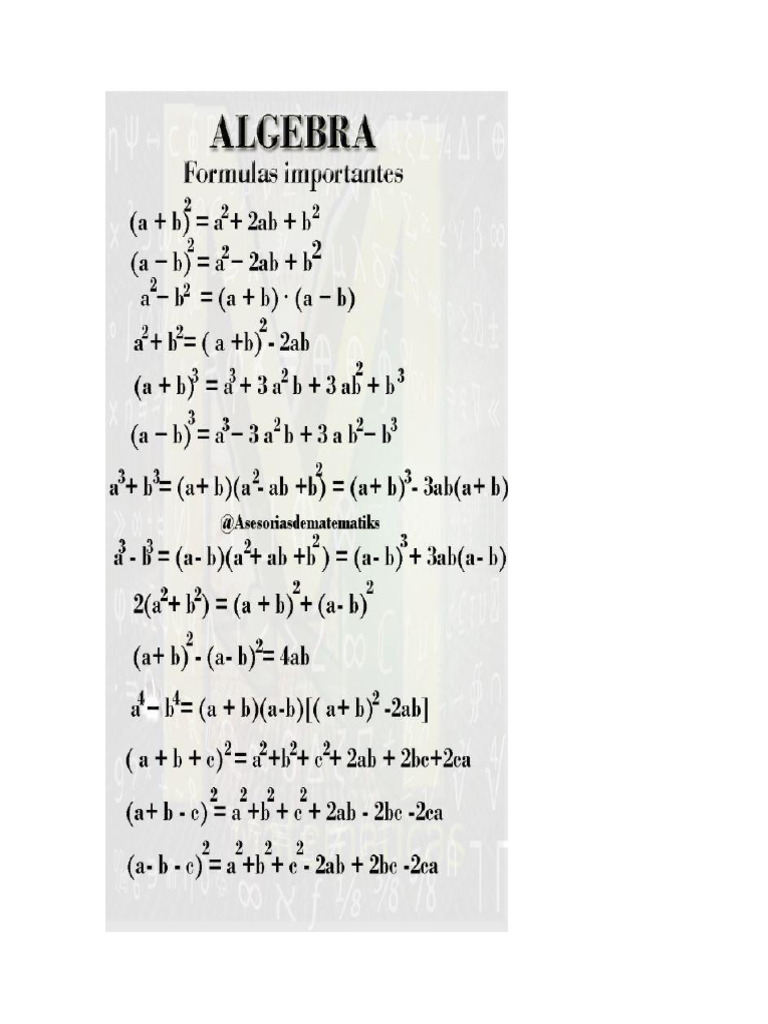 ALGEBRA
Formulas importantes
(a + b)² = a² + 2ab + b²
(a − b)² = a² − 2ab + b²
a² − b² = (a + b) · (a − b)
a² + b² = ( a +b)² - 2ab
(a + b)³ = a³ + 3 a² b + 3 ab² + b³
(a − b)³ = a³ − 3 a² b + 3 a b² − b³
a³ + b³ = (a+ b)(a² - ab +b²) = (a+ b)³ - 3ab(a+ b)
@Asesoriasdematematiks
a³ - b³ = (a- b)(a² + ab +b² ) = (a- b)³ + 3ab(a- b)
2(a² + b²) = (a + b)² + (a- b)²
(a+ b)² - (a- b)² = 4ab
a⁴ − b⁴ = (a + b)(a-b)[( a+ b)² -2ab]
( a + b + c)² = a²+b²+ c²+ 2ab + 2bc+2ca
(a+ b - c)² = a²+b²+ c²+ 2ab - 2bc -2ca
(a- b - c)² = a²+b²+ c²- 2ab + 2bc -2ca